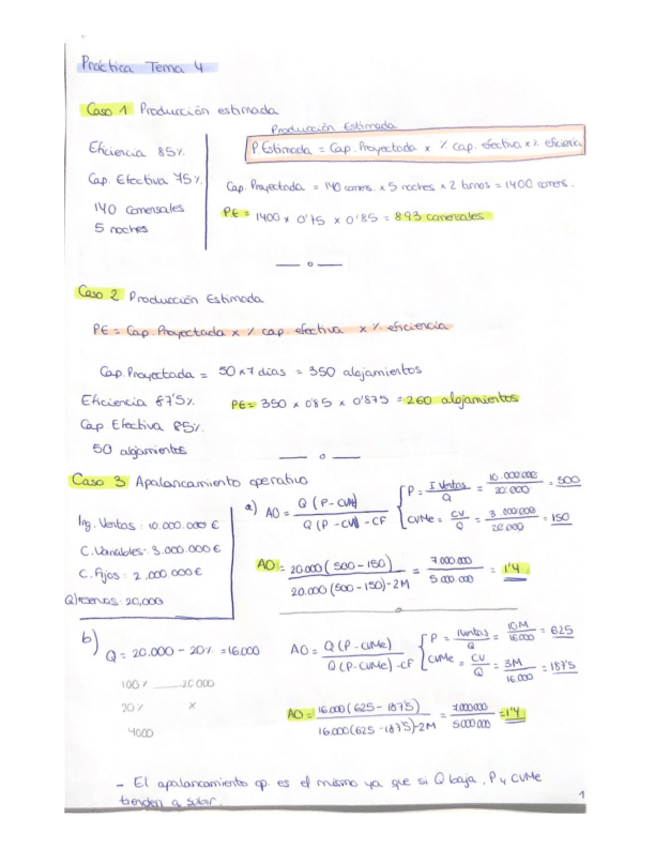 Práctica Tema 4
Caso 1 Producción estimada
Eficiencia 85%.
Cap. Efectiva 75%.
140 comensales
5 noches
Producción Estimada
P.Estimada = Cap. Proyectada x % cap. efectiva x % eficiencia
Cap. Proyectada = 140 comens. x 5 noches x 2 turnos = 1400 comens.
PE = 1400 x 0'75 x 0'85 = 893 comensales
Caso 2 Producción Estimada
PE = Cap. Proyectada x % cap. efectiva x % eficiencia
Cap. Proyectada = 50 x 7 días = 350 alojamientos
Eficiencia 87'5%.
Cap Efectiva 85%.
50 alojamientos
PE = 350 x 0'85 x 0'875 = 260 alojamientos
Caso 3 Apalancamiento operativo
Ing. Ventas: 10.000.000 €
C. Variables: 3.000.000 €
C. Fijos: 2.000.000 €
Q) reservas: 20,000
a) AO = Q (P - CVMe) / Q (P - CVMe) - CF
P = I Ventas / Q = 10.000.000 / 20.000 = 500
CVMe = CV / Q = 3.000.000 / 20.000 = 150
AO = 20.000 (500 - 150) / 20.000 (500 - 150) - 2M = 7.000.000 / 5.000.000 = 1'4
b) Q = 20.000 - 20% = 16.000
100% ___ 20.000
20% x
4000
AO = Q (P - CVMe) / Q (P - CVMe) - CF
P = I Ventas / Q = 10M / 16.000 = 625
CVMe = CV / Q = 3M / 16.000 = 187'5
AO = 16.000 (625 - 187'5) / 16.000 (625 - 187'5) - 2M = 7.000.000 / 5.000.000 = 1'4
- El apalancamiento op. es el mismo ya que si Q baja, P y CVMe
tienden a subir.
1